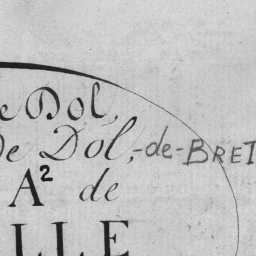 e Dol,
De Dol,-de-BRET
A² de
LLE